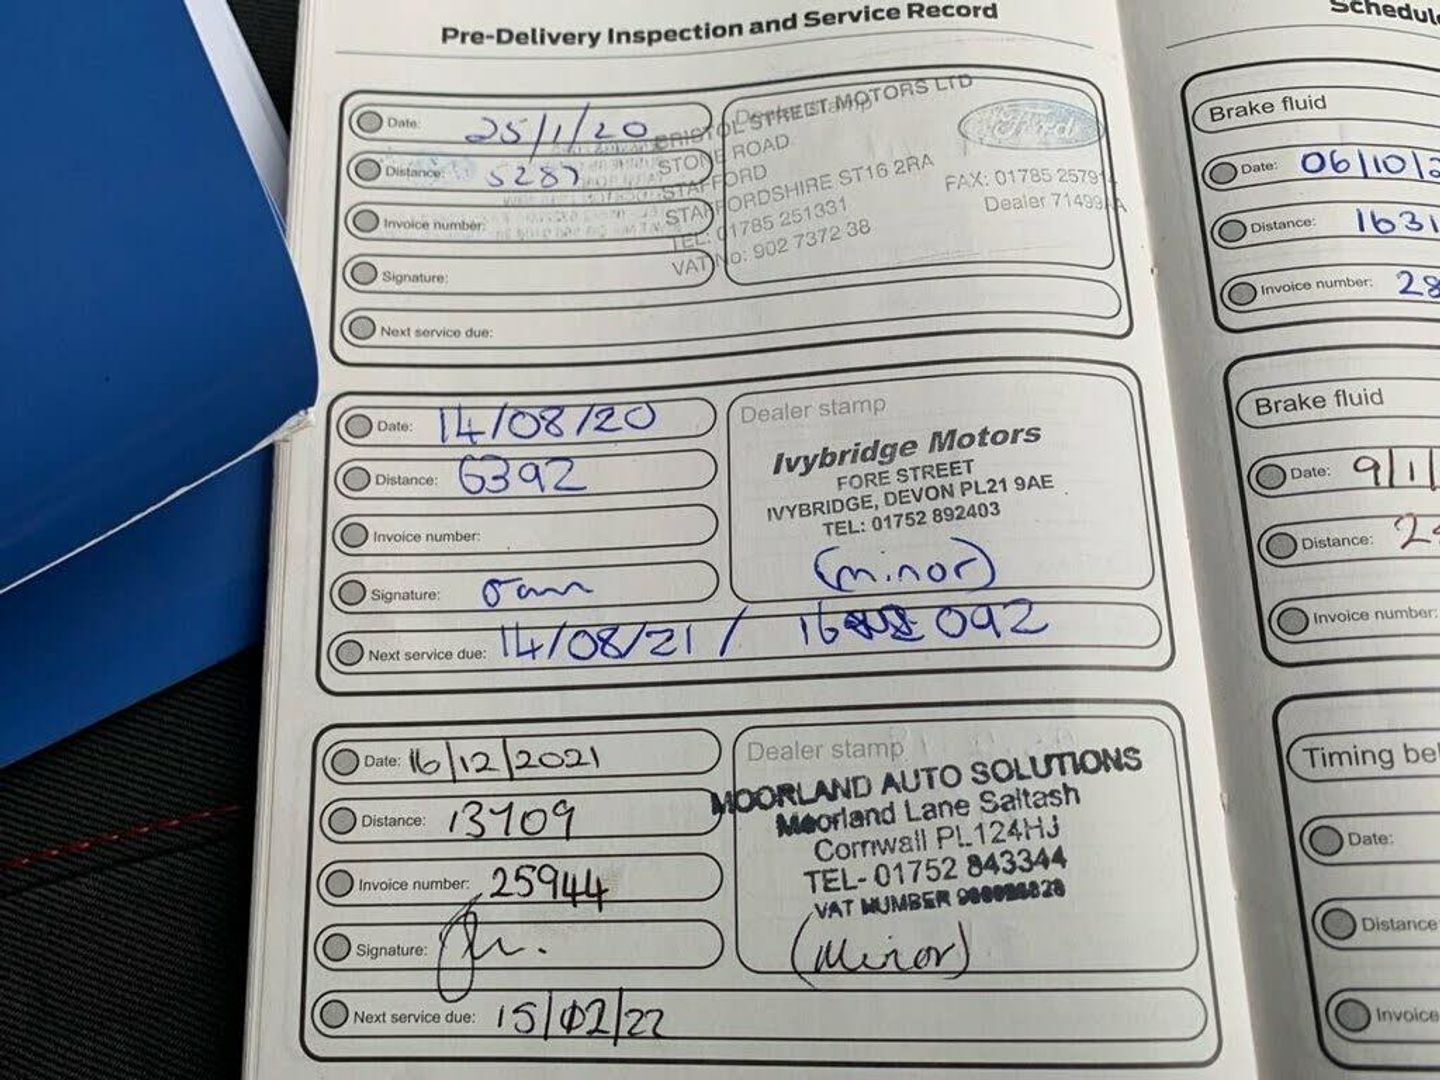 Pre-Delivery Inspection and Service Record
Date: 25/1/20
Distance: 5287
Invoice number:
Signature:
Next service due:
Dealer stamp
BRISTOL STREET MOTORS LTD
STONE ROAD
STAFFORD
STAFFORDSHIRE ST16 2RA
TEL: 01785 251331
VAT No: 902 7372 38
Ford
FAX: 01785 2579
Dealer 71499AA
Date: 14/08/20
Distance: 6392
Invoice number:
Signature:
Next service due: 14/08/21 / 16 092
Dealer stamp
Ivybridge Motors
FORE STREET
IVYBRIDGE, DEVON PL21 9AE
TEL: 01752 892403
(minor)
Date: 16/12/2021
Distance: 13709
Invoice number: 25944
Signature:
Next service due: 15/02/22
Dealer stamp
MOORLAND AUTO SOLUTIONS
Moorland Lane Saltash
Cornwall PL124HJ
TEL- 01752 843344
VAT NUMBER
(Minor)
Schedul
Brake fluid
Date: 06/10/2
Distance: 1631
Invoice number: 28
Brake fluid
Date: 9/1/
Distance: 2
Invoice number:
Timing be
Date:
Distance
Invoice